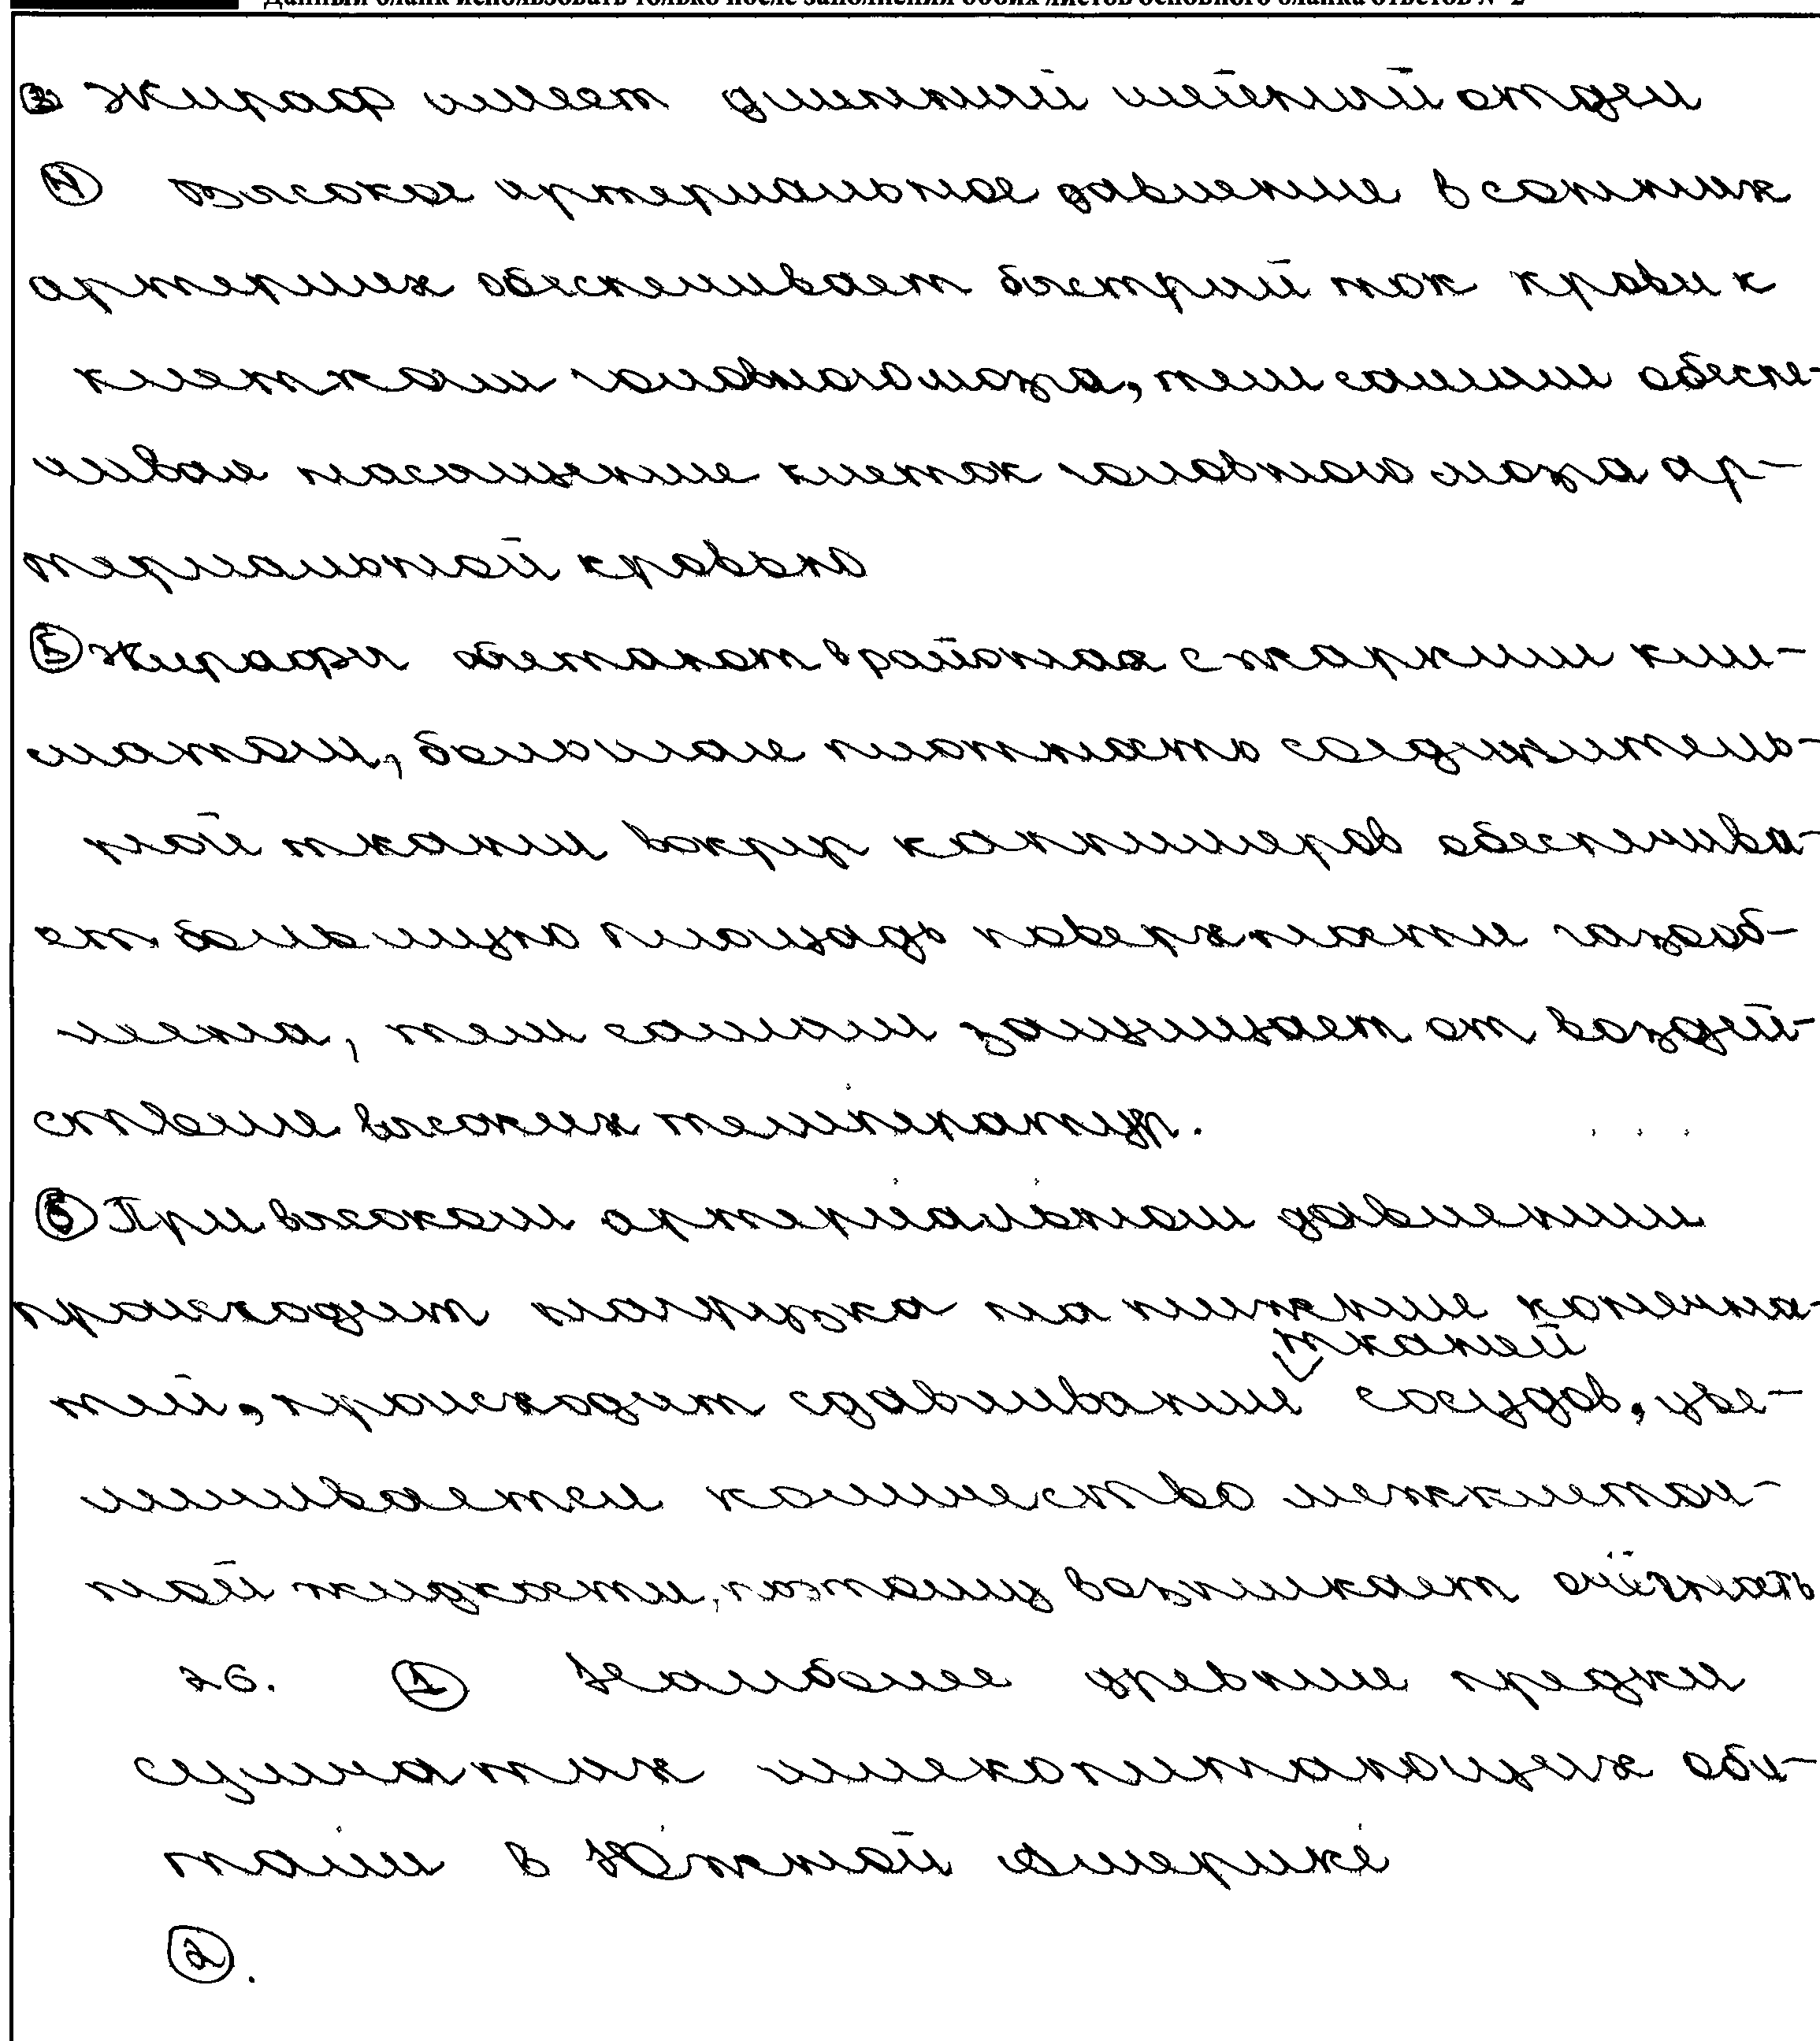 Данный бланк использовать только после заполнения обоих листов основного бланка ответов № 2
③ Жираф имеет длинный шейный отдел
④ Высокое артериальное давление в сонных
артериях обеспечивает быстрый ток крови к
клеткам головного мозга, тем самым обеспе-
чивая насыщение клеток головного мозга ар-
териальной кровью
⑤ Жирафы обитают в районах с жарким кли-
матом, большая плотность соединитель-
ной ткани вокруг капилляров обеспечива-
ет большую площадь поверхности газооб-
мена, тем самым защищает от воздей-
ствие высоких температур.
⑥ При высоком артериальном давлении
происходит нагрузка на нижние конечно-
тей, происходит сдавливание тканей сосудов, уве-
личивается количество межклеточ-
ной жидкости, поэтому возникает
26. ① Наиболее древние предки
сумчатых млекопитающих оби-
тали в Южной Америке
②.